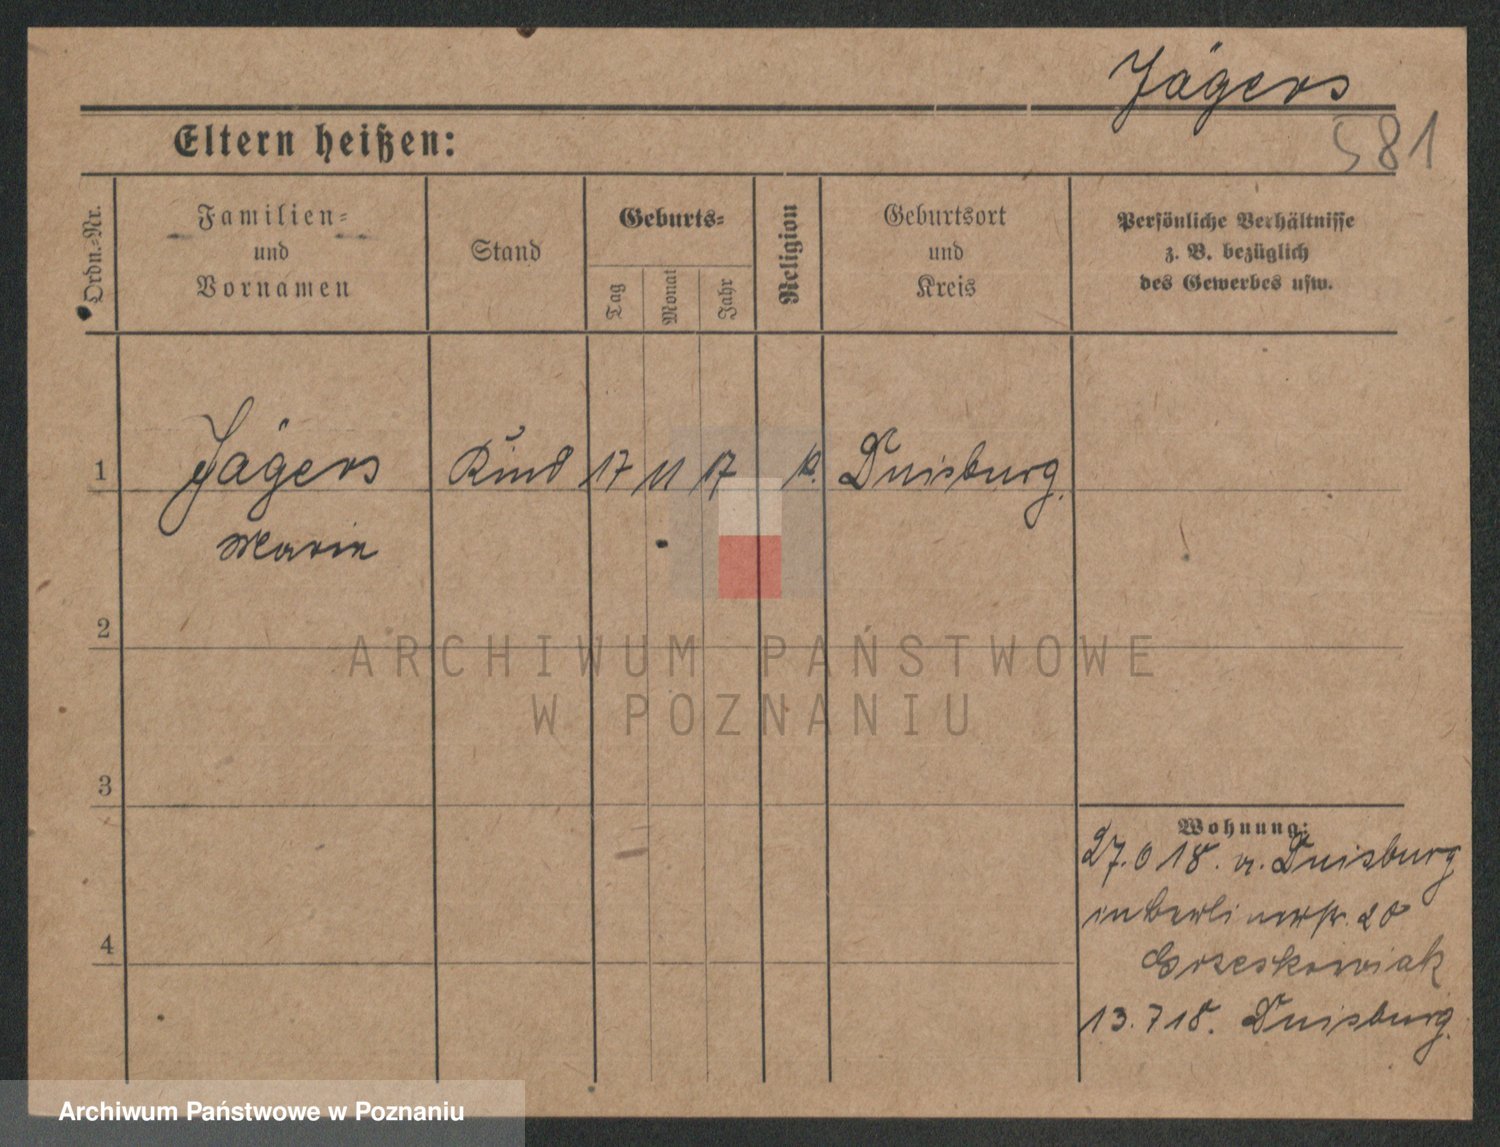 Jägers
581
Eltern heißen:
Ordn.-Nr.
Familien-
und
Vornamen
Stand
Geburts-
Tag
Monat
Jahr
Religion
Geburtsort
und
Kreis
Persönliche Verhältnisse
z. B. bezüglich
des Gewerbes usw.
1 Jägers Kind 17 11 17 k. Duisburg.
Marie
2
ARCHIWUM PAŃSTWOWE
W POZNANIU
3
Wohnung:
27. 18. v. Duisburg
in Berlinerstr. 20
13.7 18. Duisburg.
4
Archiwum Państwowe w Poznaniu